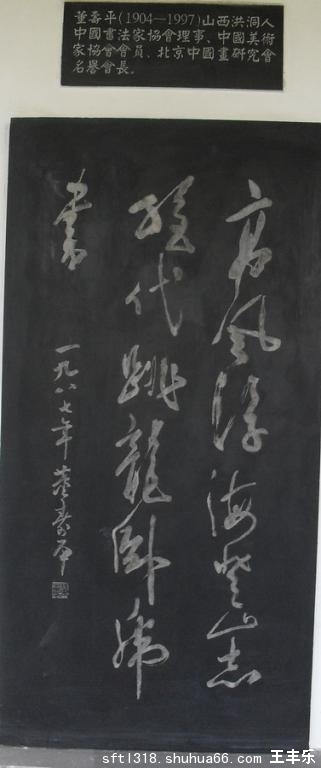 董壽平(1904—1997)山西洪洞人
中國書法家協會理事、中國美術
家協會會員、北京中國畫研究會
名譽會長。
高風浮海登山志
絕代跳龍卧虎
書
一九八七年 董壽平
sftl318.shuhua66.com 王丰乐